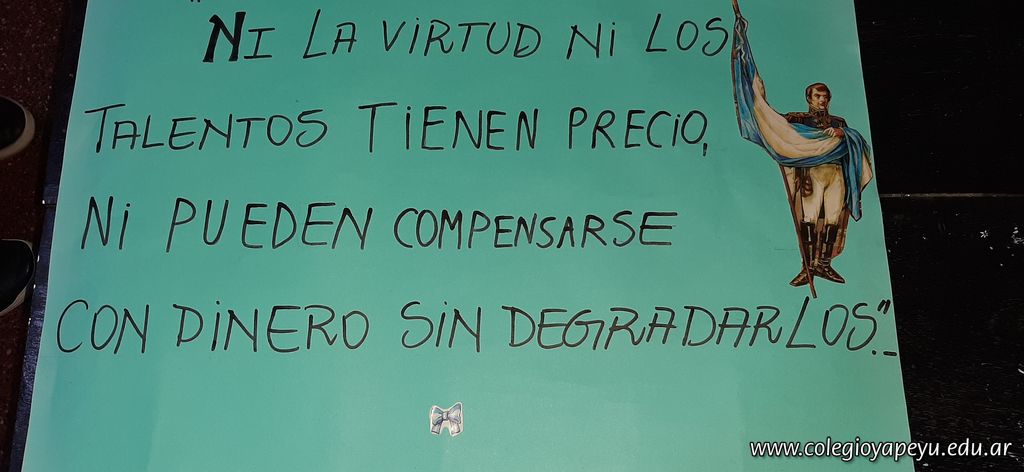 "NI LA VIRTUD NI LOS
TALENTOS TIENEN PRECIO,
NI PUEDEN COMPENSARSE
CON DINERO SIN DEGRADARLOS".-
www.colegioyapeyu.edu.ar